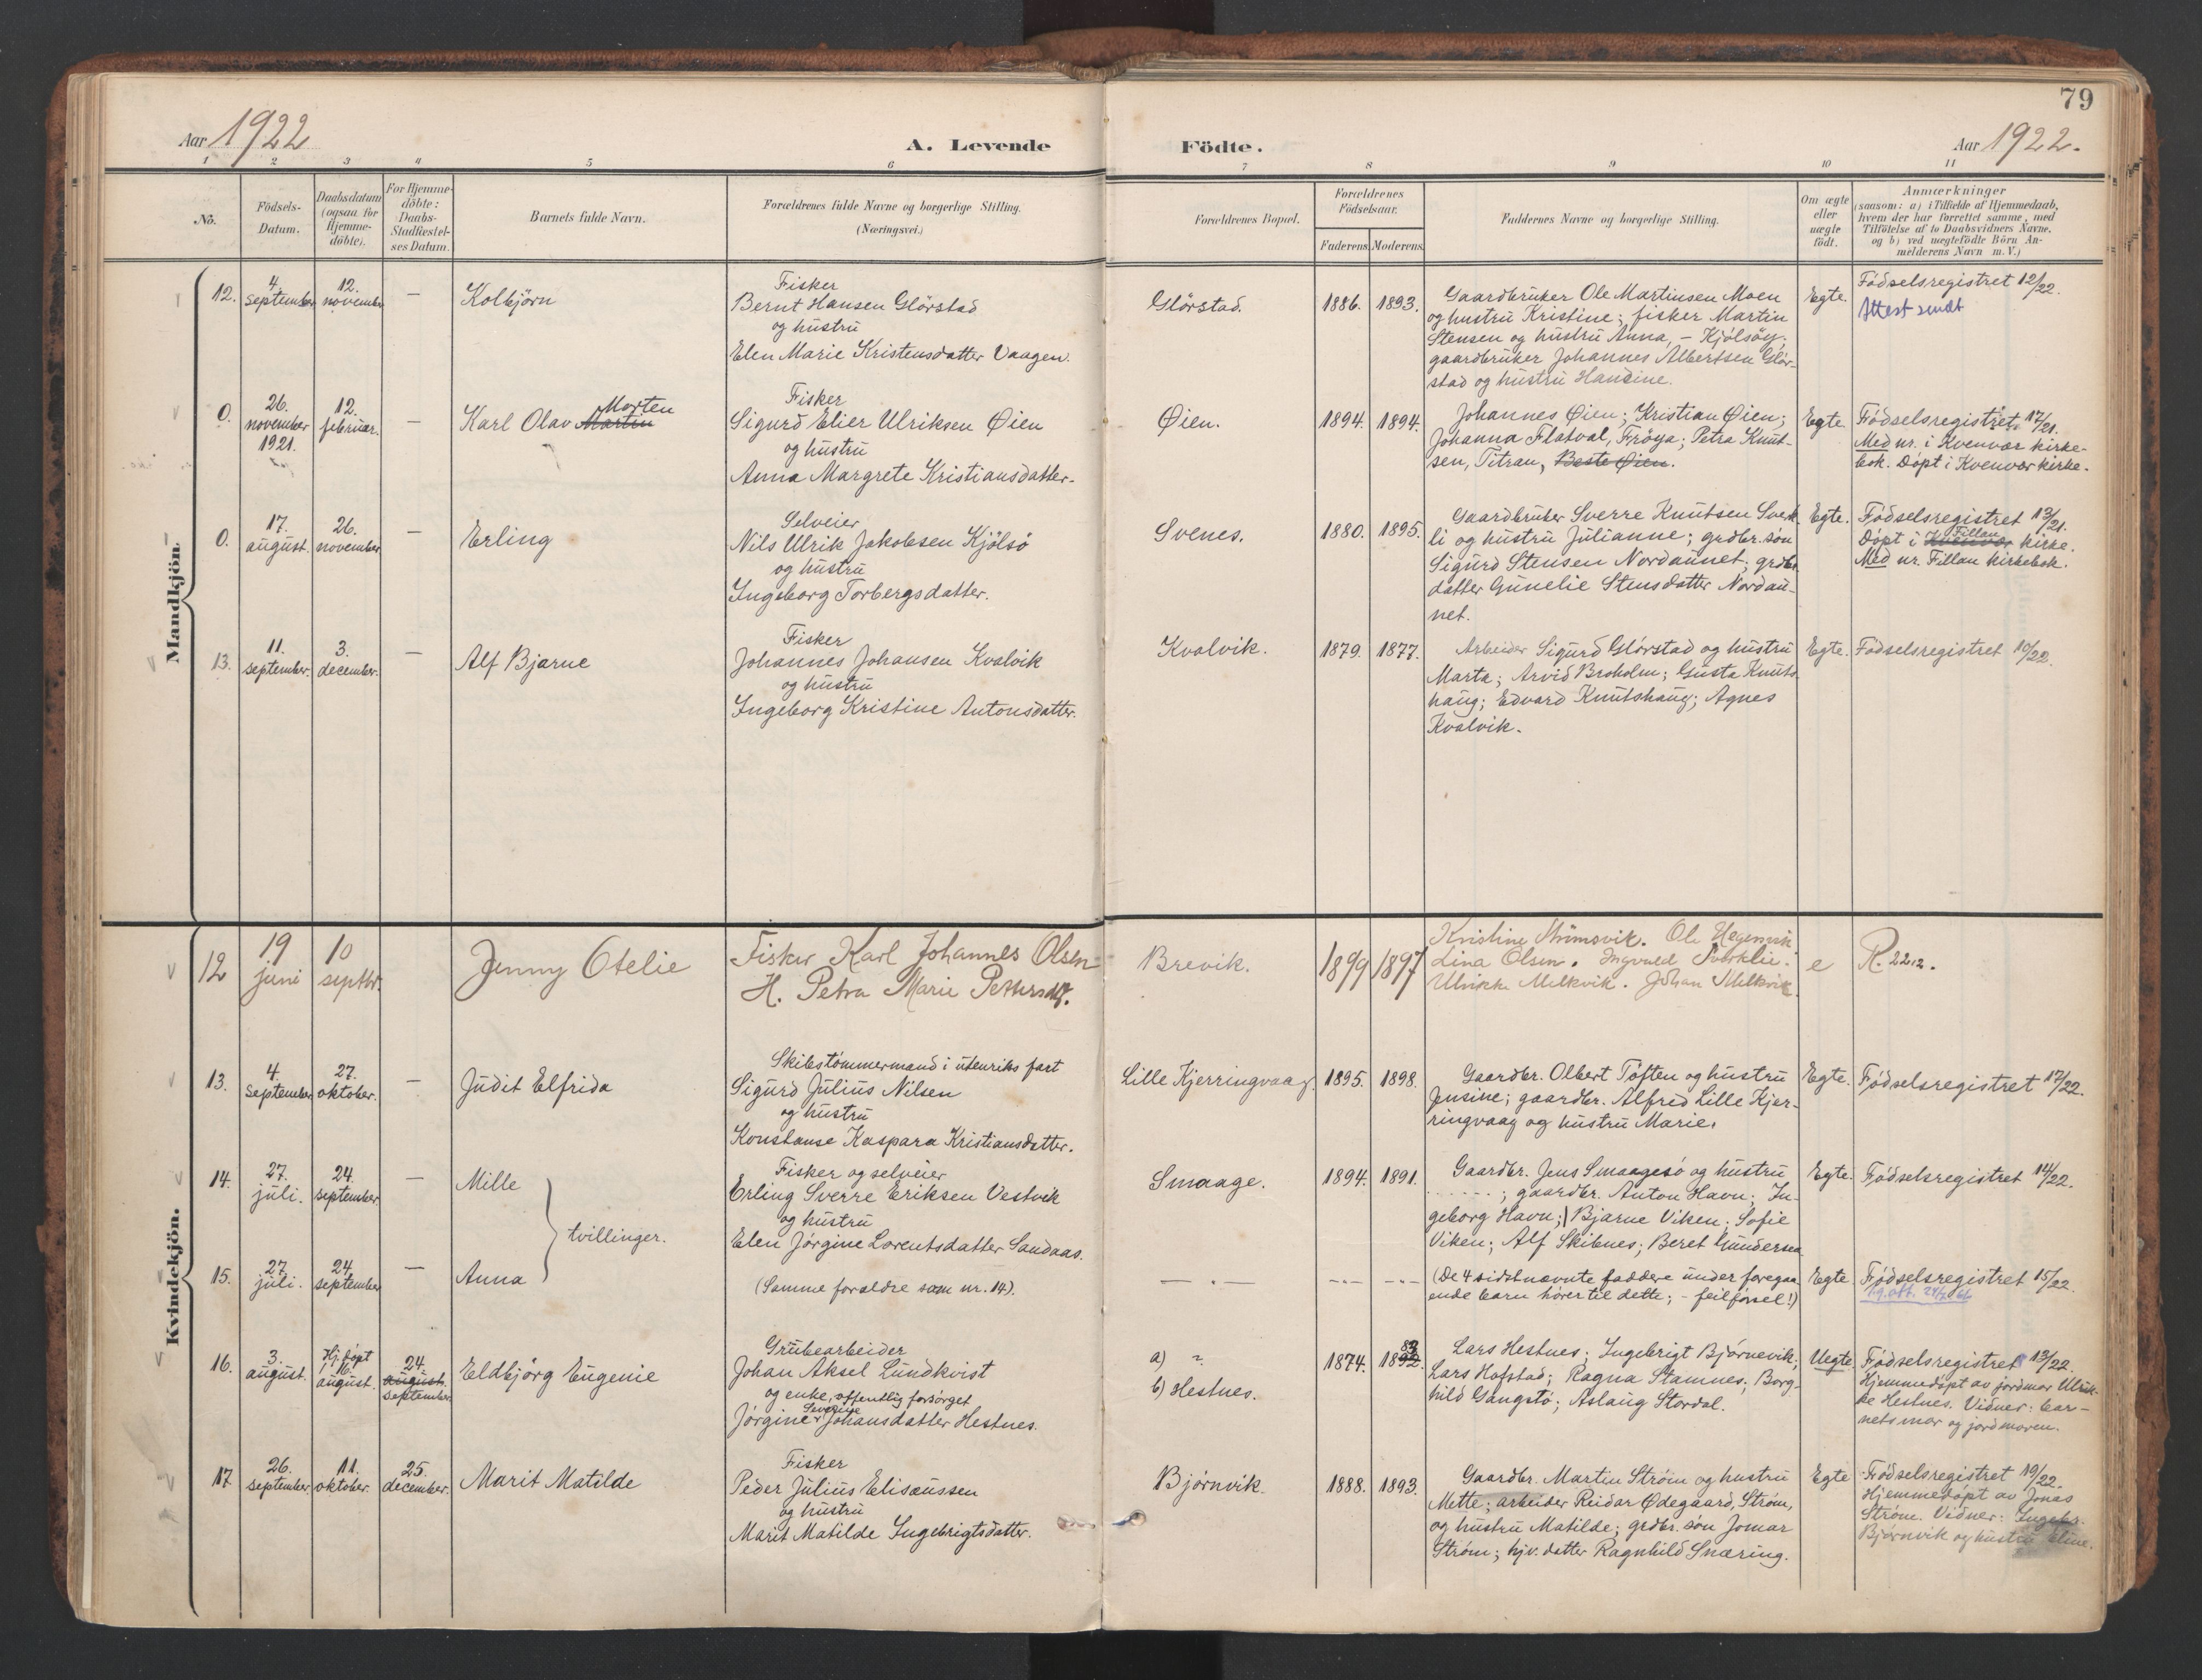 79
Aar 1922
A. Levende Födte.
Aar 1922.
1 2 3 4 5 6 7 8 9 10 11
No.
Födsels-
Datum.
Daabsdatum
(ogsaa for
Hjemme-
döbte).
For Hjemme-
döbte:
Daabs-
Stadfæstel-
ses Datum.
Barnets fulde Navn.
Forældrenes fulde Navne og borgerlige Stilling.
(Næringsvei.)
Forældrenes Bopæl.
Forældrenes
Födselsaar.
Faderens. Moderens.
Faddernes Navne og borgerlige Stilling.
Om ægte
eller
uægte
födt.
Anmærkninger
(saasom: a) i Tilfælde af Hjemmedaab,
hvem der har forrettet samme, med
Tilföielse af to Daabsvidners Navne,
og b) ved uægtefödte Börn An-
melderens Navn m. V.)
Mandkjön.
12.
4.
september
12.
november
—
Kolbjörn
Fisker
Bernt Hansen Glörstad
og hustru
Elen Marie Kristensdatter Vaagen.
Glörstad.
1886. 1893.
Gaardbruker Ole Martinsen Moen
og hustru Kristine; fisker Martin
Stensen og hustru Anna, - Kjölsöy;
gaardbruker Johannes Albertsen Glör-
stad og hustru Hansine.
Egte.
Födselsregistret 12/22.
Attest sendt
0.
26.
november
1921.
12.
februar.
—
Morten
Karl Olav Martin
Fisker
Sigurd Elier Ulriksen Øien
og hustru
Anna Margrete Kristiansdatter.
Øien.
1894. 1894.
Johannes Øien; Kristian Øien;
Johanna Flatval, Fröya; Petra Knut-
sen, Titran, Beste Øien.
Egte
Födselsregistret 17/21.
Med nr. i Kvenvær kirke-
bok. Döpt i Kvenvær kirke.
0.
17.
august.
26.
november
—
Erling
Selveier
Nils Ulrik Jakobsen Kjölsö
og hustru
Ingeborg Torbergsdatter.
Svenes.
1880. 1895.
Gaardbruker Sverre Knutsen Svek-
li og hustru Julianne; grdbr. sön
Sigurd Stensen Nordaunet; grdbr.
datter Gunelie Stensdatter Nordau-
net.
Egte.
Födselsregistret 13/21.
Fillan
Döpt i Kvenvær kirke.
Med nr. Fillan kirkebok.
13.
11.
september.
3.
december.
—
Alf Bjarne
Fisker
Johannes Johansen Kvalvik
og hustru
Ingeborg Kristine Antonsdatter.
Kvalvik.
1879. 1877.
Arbeider Sigurd Glörstad og hustru
Marta; Arvid Broholm; Gusta Knuts-
haug; Edvard Knutshaug; Agnes
Kvalvik.
Egte.
Födselsregistret 10/22.
Kvindekjön.
12
19
juni
10
septbr.
Jenny Otelie
Fisker Karl Johannes Olsen
H. Petra Marie Pettersdtr.
Brevik.
1899 1897
Kristine Strömsvik. Ole Hegervik.
Lina Olsen. Ingvald Sverklie.
Ulrikke Melkvik. Johan Melkvik.
e
R. 22 12.
13.
4.
september
27.
oktober.
—
Judit Elfrida
Skibstömmermand i utenriks fart
Sigurd Julius Nilsen
og hustru
Konstanse Kaspara Kristiansdatter.
Lille Kjerringvaag.
1895. 1898.
Gaardbr. Olbert Töften og hustru
Jensine; gaardbr. Alfred Lille Kjer-
ringvaag og hustru Marie.
Egte.
Födselsregistret 17/22.
14.
27.
juli.
24.
september
—
Mille
tvillinger.
Fisker og selveier
Erling Sverre Eriksen Vestvik
og hustru
Elen Jörgine Lorentsdatter Sandaas.
Smaage.
1894. 1891.
Gaardbr. Jens Smaagesö og hustru
- - - - - ; gaardbr. Anton Havn; In-
geborg Havn; | Bjarne Viken; Sofie
Viken; Alf Skibnes; Beret Gundersen
Egte.
Födselsregistret 14/22.
15.
27.
juli.
24.
september
—
Anna
(Samme forældre som nr. 14).
— . —
— . — — . —
(De 4 sidstnævnte faddere under foregaa-
ende barn hörer til dette; - feilförsel!)
Egte
Födselsregistret 15/22.
16.
3.
august.
Hj. döpt
16.
august.
24.
august.
september.
Eldbjörg Eugenie
Grubearbeider
Johan Aksel Lundkvist
og enke, offentlig forsörget
Severine
Jörgine Johansdatter Hestnes.
a) "
b) Hestnes.
1874.
83
1892.
Lars Hestnes; Ingebrigt Björnevik;
Lars Hofstad; Ragna Stamnes; Borg-
hild Gangstö; Aslaug Stordal.
Uegte.
Födselsregistret 13/22.
Hjemmedöpt av jordmor Ulrik-
ke Hestnes. Vidner: bar-
nets mor og jordmoren.
17.
26.
september.
11.
oktober.
25.
december.
Marit Matilde
Fisker
Peder Julius Elisæussen
og hustru
Marit Matilde Ingebrigtsdatter.
Björnvik.
1888. 1893.
Gaardbr. Martin Ström og hustru
Mette; arbeider Reidar Ødegaard, Ström,
og hustru Matilde; grdbr. sön Jomar
Ström; hjv. datter Ragnhild Snæring.
Egte
Födselsregistret 19/22.
Hjemmedöpt av Jonas
Ström. Vidner: Ingebr.
Björnvik og hustru Eline.